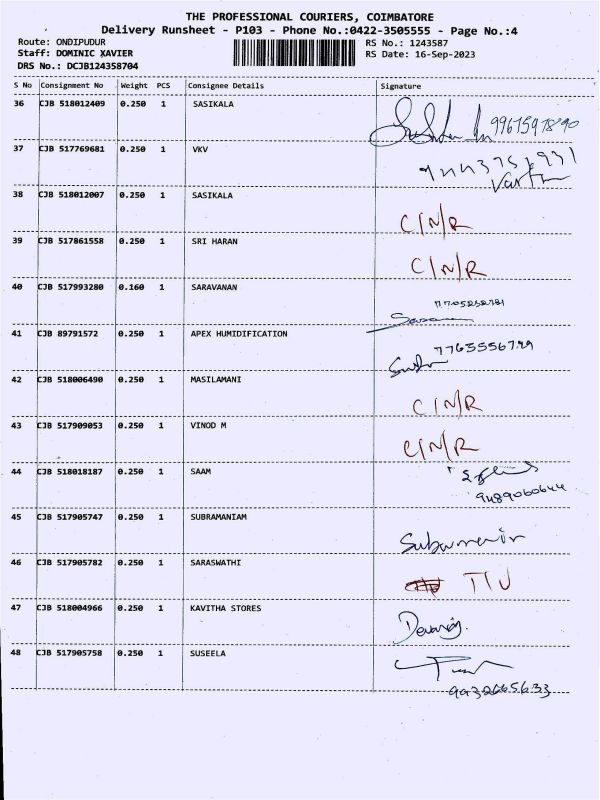 THE PROFESSIONAL COURIERS, COIMBATORE
Delivery Runsheet - P103 - Phone No.:0422-3505555 - Page No.:4
Route: ONDIPUDUR RS No.: 1243587
Staff: DOMINIC XAVIER RS Date: 16-Sep-2023
DRS No.: DCJB124358704
S No Consignment No Weight PCS Consignee Details Signature
36 CJB 518012409 0.250 1 SASIKALA
37 CJB 517769681 0.250 1 VKV
38 CJB 518012007 0.250 1 SASIKALA C/N/R
39 CJB 517861558 0.250 1 SRI HARAN C/N/R
40 CJB 517993280 0.160 1 SARAVANAN
41 CJB 89791572 0.250 1 APEX HUMIDIFICATION
42 CJB 518006490 0.250 1 MASILAMANI C/N/R
43 CJB 517909053 0.250 1 VINOD M C/N/R
44 CJB 518018187 0.250 1 SAAM 9489060644
45 CJB 517905747 0.250 1 SUBRAMANIAM
46 CJB 517905782 0.250 1 SARASWATHI
47 CJB 518004966 0.250 1 KAVITHA STORES
48 CJB 517905758 0.250 1 SUSEELA